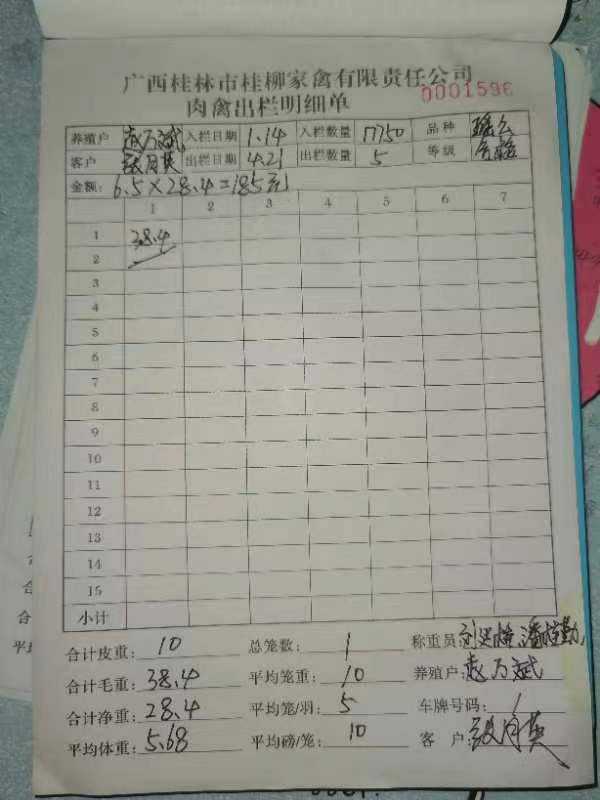 广西桂林市桂柳家禽有限责任公司
0001596
肉禽出栏明细单
养殖户 赵万斌 入栏日期 1.14 入栏数量 17750 品种
客户 月英 出栏日期 4.21 出栏数量 5 等级
金额: 6.5×28.4=185元
1 2 3 4 5 6 7
1 38.4
2
3
4
5
6
7
8
9
10
11
12
13
14
15
小计
合计皮重: 10 总笼数: 1 称重员:
合计毛重: 38.4 平均笼重: 10 养殖户: 赵万斌
合计净重: 28.4 平均笼/羽: 5 车牌号码: /
平均体重: 5.68 平均磅/笼: 10 客户: 月英
合
合
平均